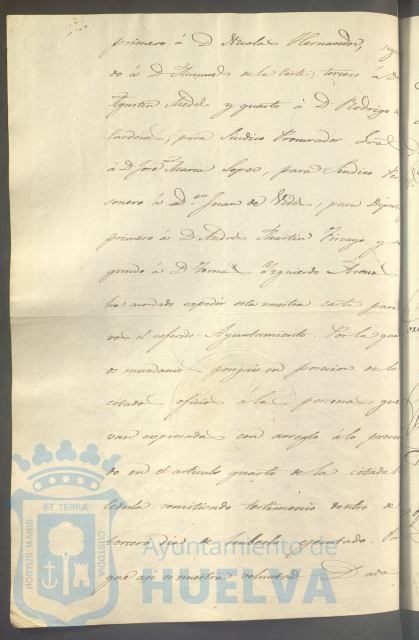 primero á D. Nicolas Hernandez, segun
do á D. Manuel de la Corte, tercero á D.
Agustin Medel y quarto á D. Rodrigo
Cardena; para Sindico Procurador Gral
á D. José Maria Lopez, para Sindico Per
sonero á D. Juan de Vides, para Diputado
primero á D. Andres Martin Vicayo y se
gundo á D. Tomas Yzquierdo Arena
ha acordado expedir esta nuestra carta para
vos el referido Ayuntamiento. Por la qual
os mandamos pongais en posesion de los
citados oficios á las personas que
van expresadas con arreglo á lo preveni
do en el articulo quarto de la citada R.
Cedula remitiendo testimonio dentro de
tercero dia de haberlo ejecutado. Por
que asi es nuestra voluntad Dada
PORTUS MARIS ET TERRÆ CUSTODIA
Ayuntamiento de
HUELVA